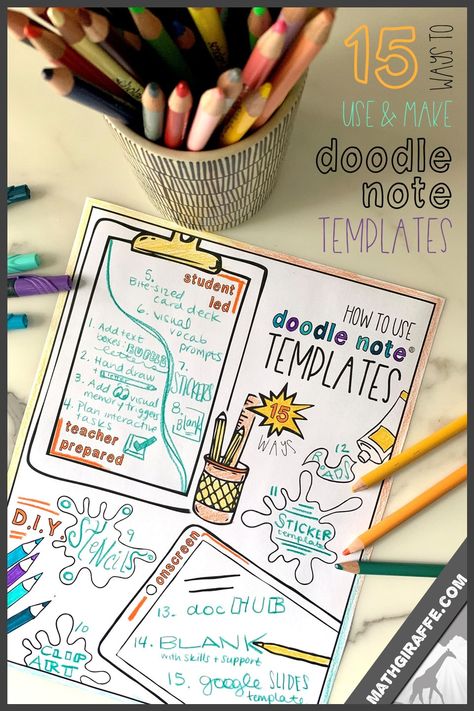 15
WAYS TO
USE & MAKE
doodle
note
TEMPLATES
HOW TO USE
doodle note®
TEMPLATES
15
WAYS
student
led
5.
Bite-sized
card deck
6. visual
vocab
prompts
7.
STICKERS
8.
Blank
1. Add text
boxes: BUBBLE
letters
2. Hand draw
3. Add visual
memory triggers
4. Plan interactive
tasks
teacher
prepared
D.I.Y.
9
Stencils
10
CLIP
ART
11
STICKER
template
12
onscreen
13. doc HUB
14. BLANK
with skills + support
15. google SLIDES
template
MATHGIRAFFE.COM